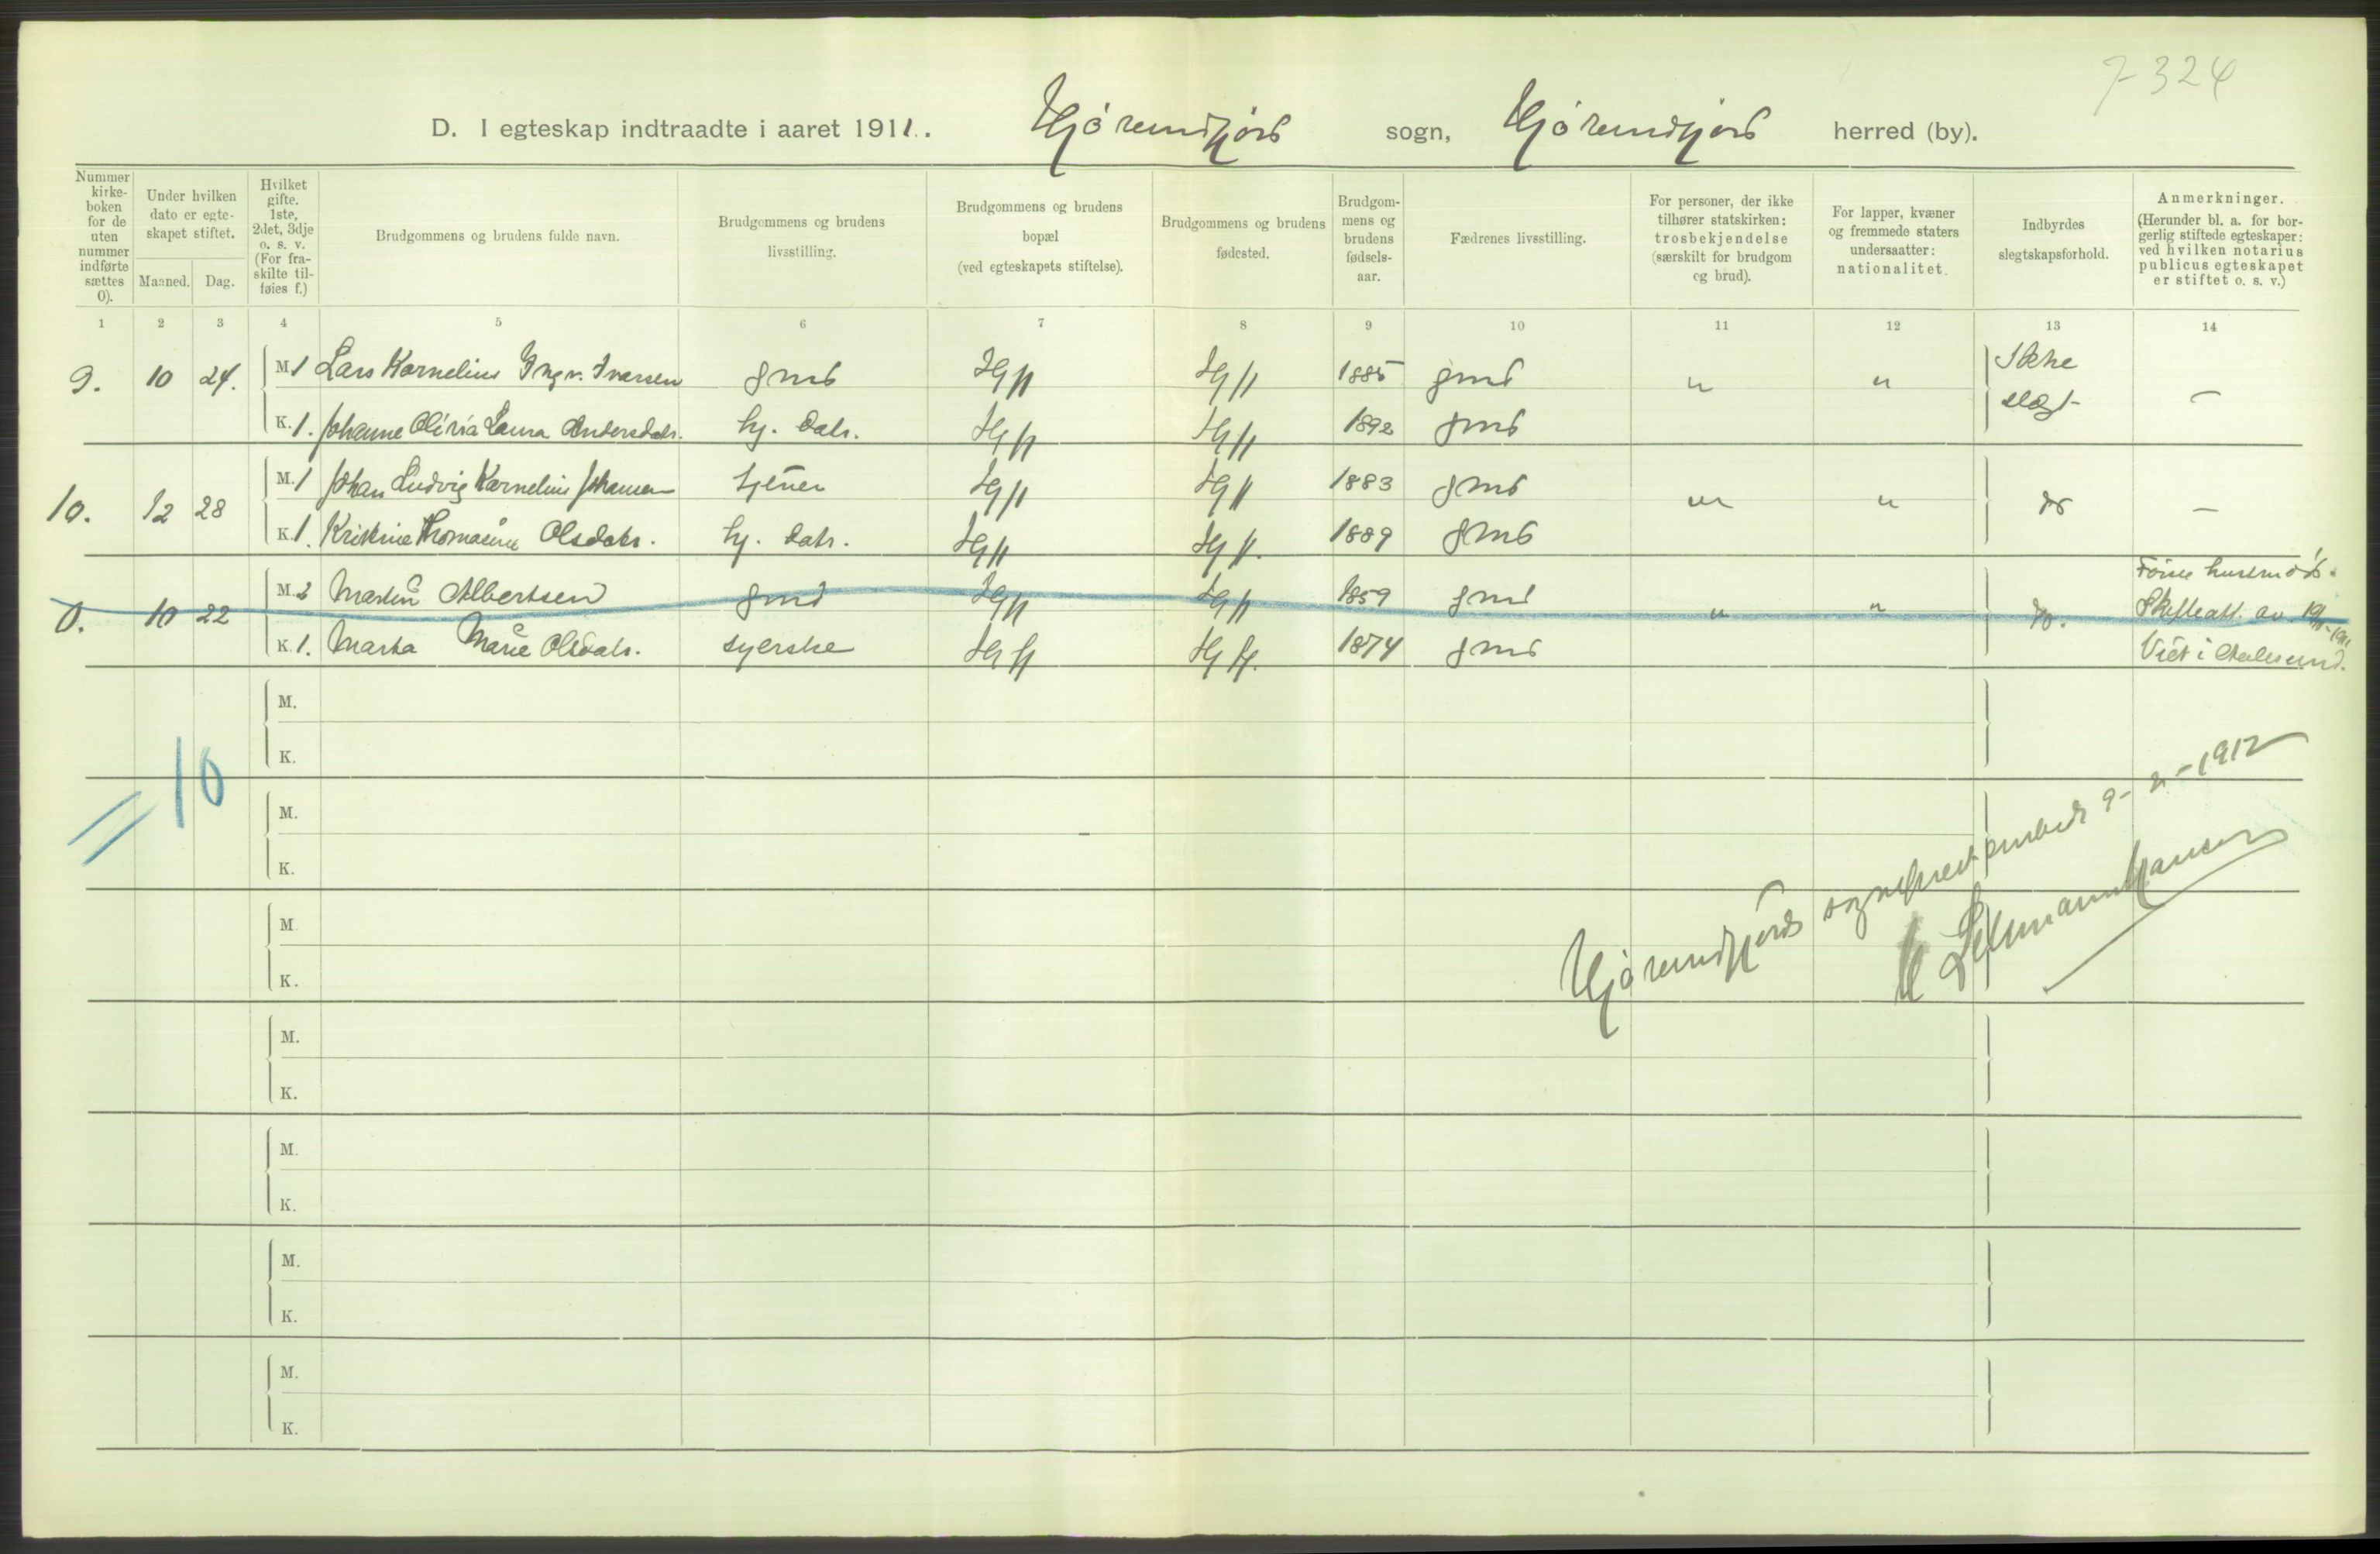 7-324
D. I egteskap indtraadte i aaret 1911. Hjørundfjord sogn, Hjørundfjord herred (by).
Nummer
kirke-
boken
for de
uten
nummer
indførte
sættes
0).
Under hvilken
dato er egte-
skapet stiftet.
Maaned. Dag.
Hvilket
gifte.
1ste,
2det, 3dje
o. s. v.
(For fra-
skilte til-
føies f.)
Brudgommens og brudens fulde navn.
Brudgommens og brudens
livsstilling.
Brudgommens og brudens
bopæl
(ved egteskapets stiftelse).
Brudgommens og brudens
fødested.
Brudgom-
mens og
brudens
fødsels-
aar.
Fædrenes livsstilling.
For personer, der ikke
tilhører statskirken:
trosbekjendelse
(særskilt for brudgom
og brud).
For lapper, kvæner
og fremmede staters
undersaatter:
nationalitet.
Indbyrdes
slegtskapsforhold.
Anmerkninger.
(Herunder bl. a. for bor-
gerlig stiftede egteskaper:
ved hvilken notarius
publicus egteskapet
er stiftet o. s. v.)
1 2 3 4 5 6 7 8 9 10 11 12 13 14
9. 10 24. M. 1 Lars Kornelius Ingv. Iversen gmd Hjfj Hjfj 1885 gmd " " Ikke slegt –
K. 1. Johanne Oliria Laura Andersdatr. hj. datr. Hjfj Hjfj 1892 gmd
10. 12 28 M. 1 Johan Ludvig Kornelius Johansen tjener Hjfj Hjfj 1883 gmd " " do –
K. 1. Kristine Thomasine Olsdatr. hj. datr. Hjfj Hjfj. 1889 gmd
0. 10 22 M. 2 Martin Albertsen gmd Hjfj Hjfj 1859 gmd " " do. Første hustru død.
Skifteatt. av
K. 1. Marta Marie Olsdatr. syerske Hjfj Hjfj. 1874 gmd Viet i Aalesund.
M.
K.
= 10
M.
K.
M.
K.
Hjørundfjords sogneprestembede 9-2-1912
Lehmann Hansen
M.
K.
M.
K.
M.
K.
M.
K.